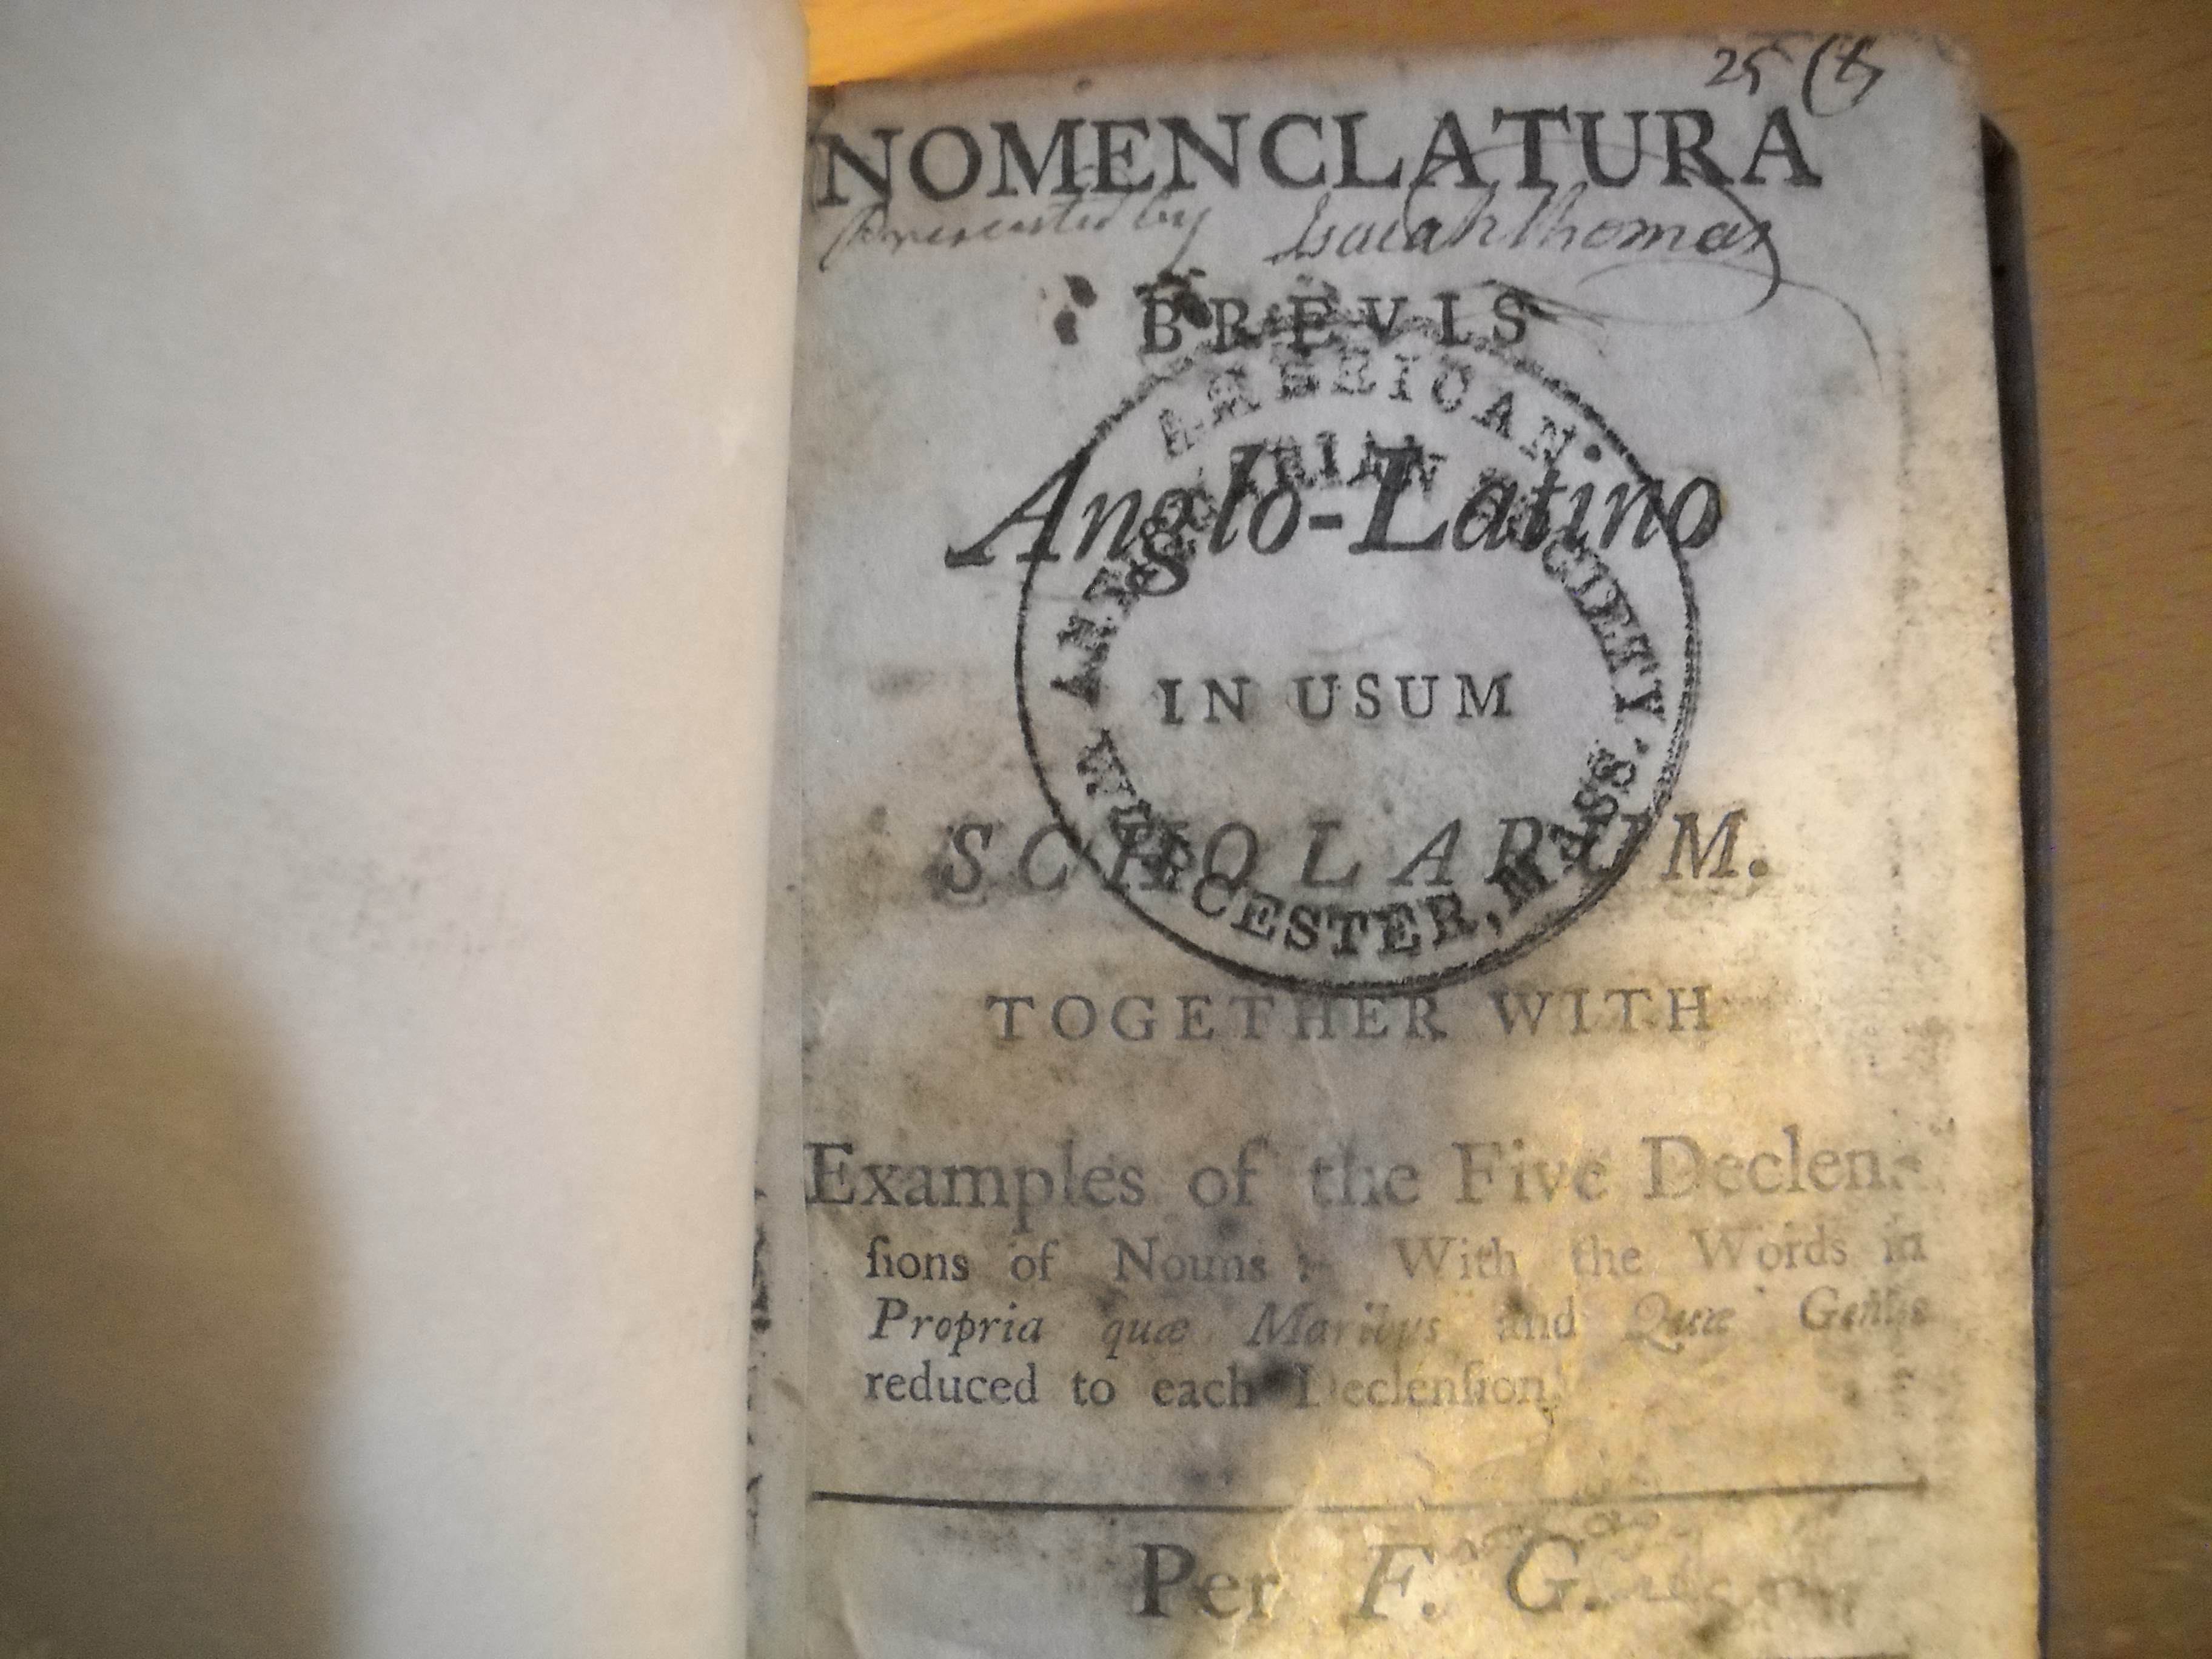 25 (8)
NOMENCLATURA
Presented by Isaiah Thomas
BREVIS
AMERICAN.
ANTIQUARIAN SOCIETY.
Anglo-Latino
IN USUM
SCHOLARUM.
WORCESTER, MASS.
TOGETHER WITH
Examples of the Five Declen-
ſions of Nouns : With the Words in
Propria quæ Maribus and Quæ Genus
reduced to each Declenſion.
Per F. G.